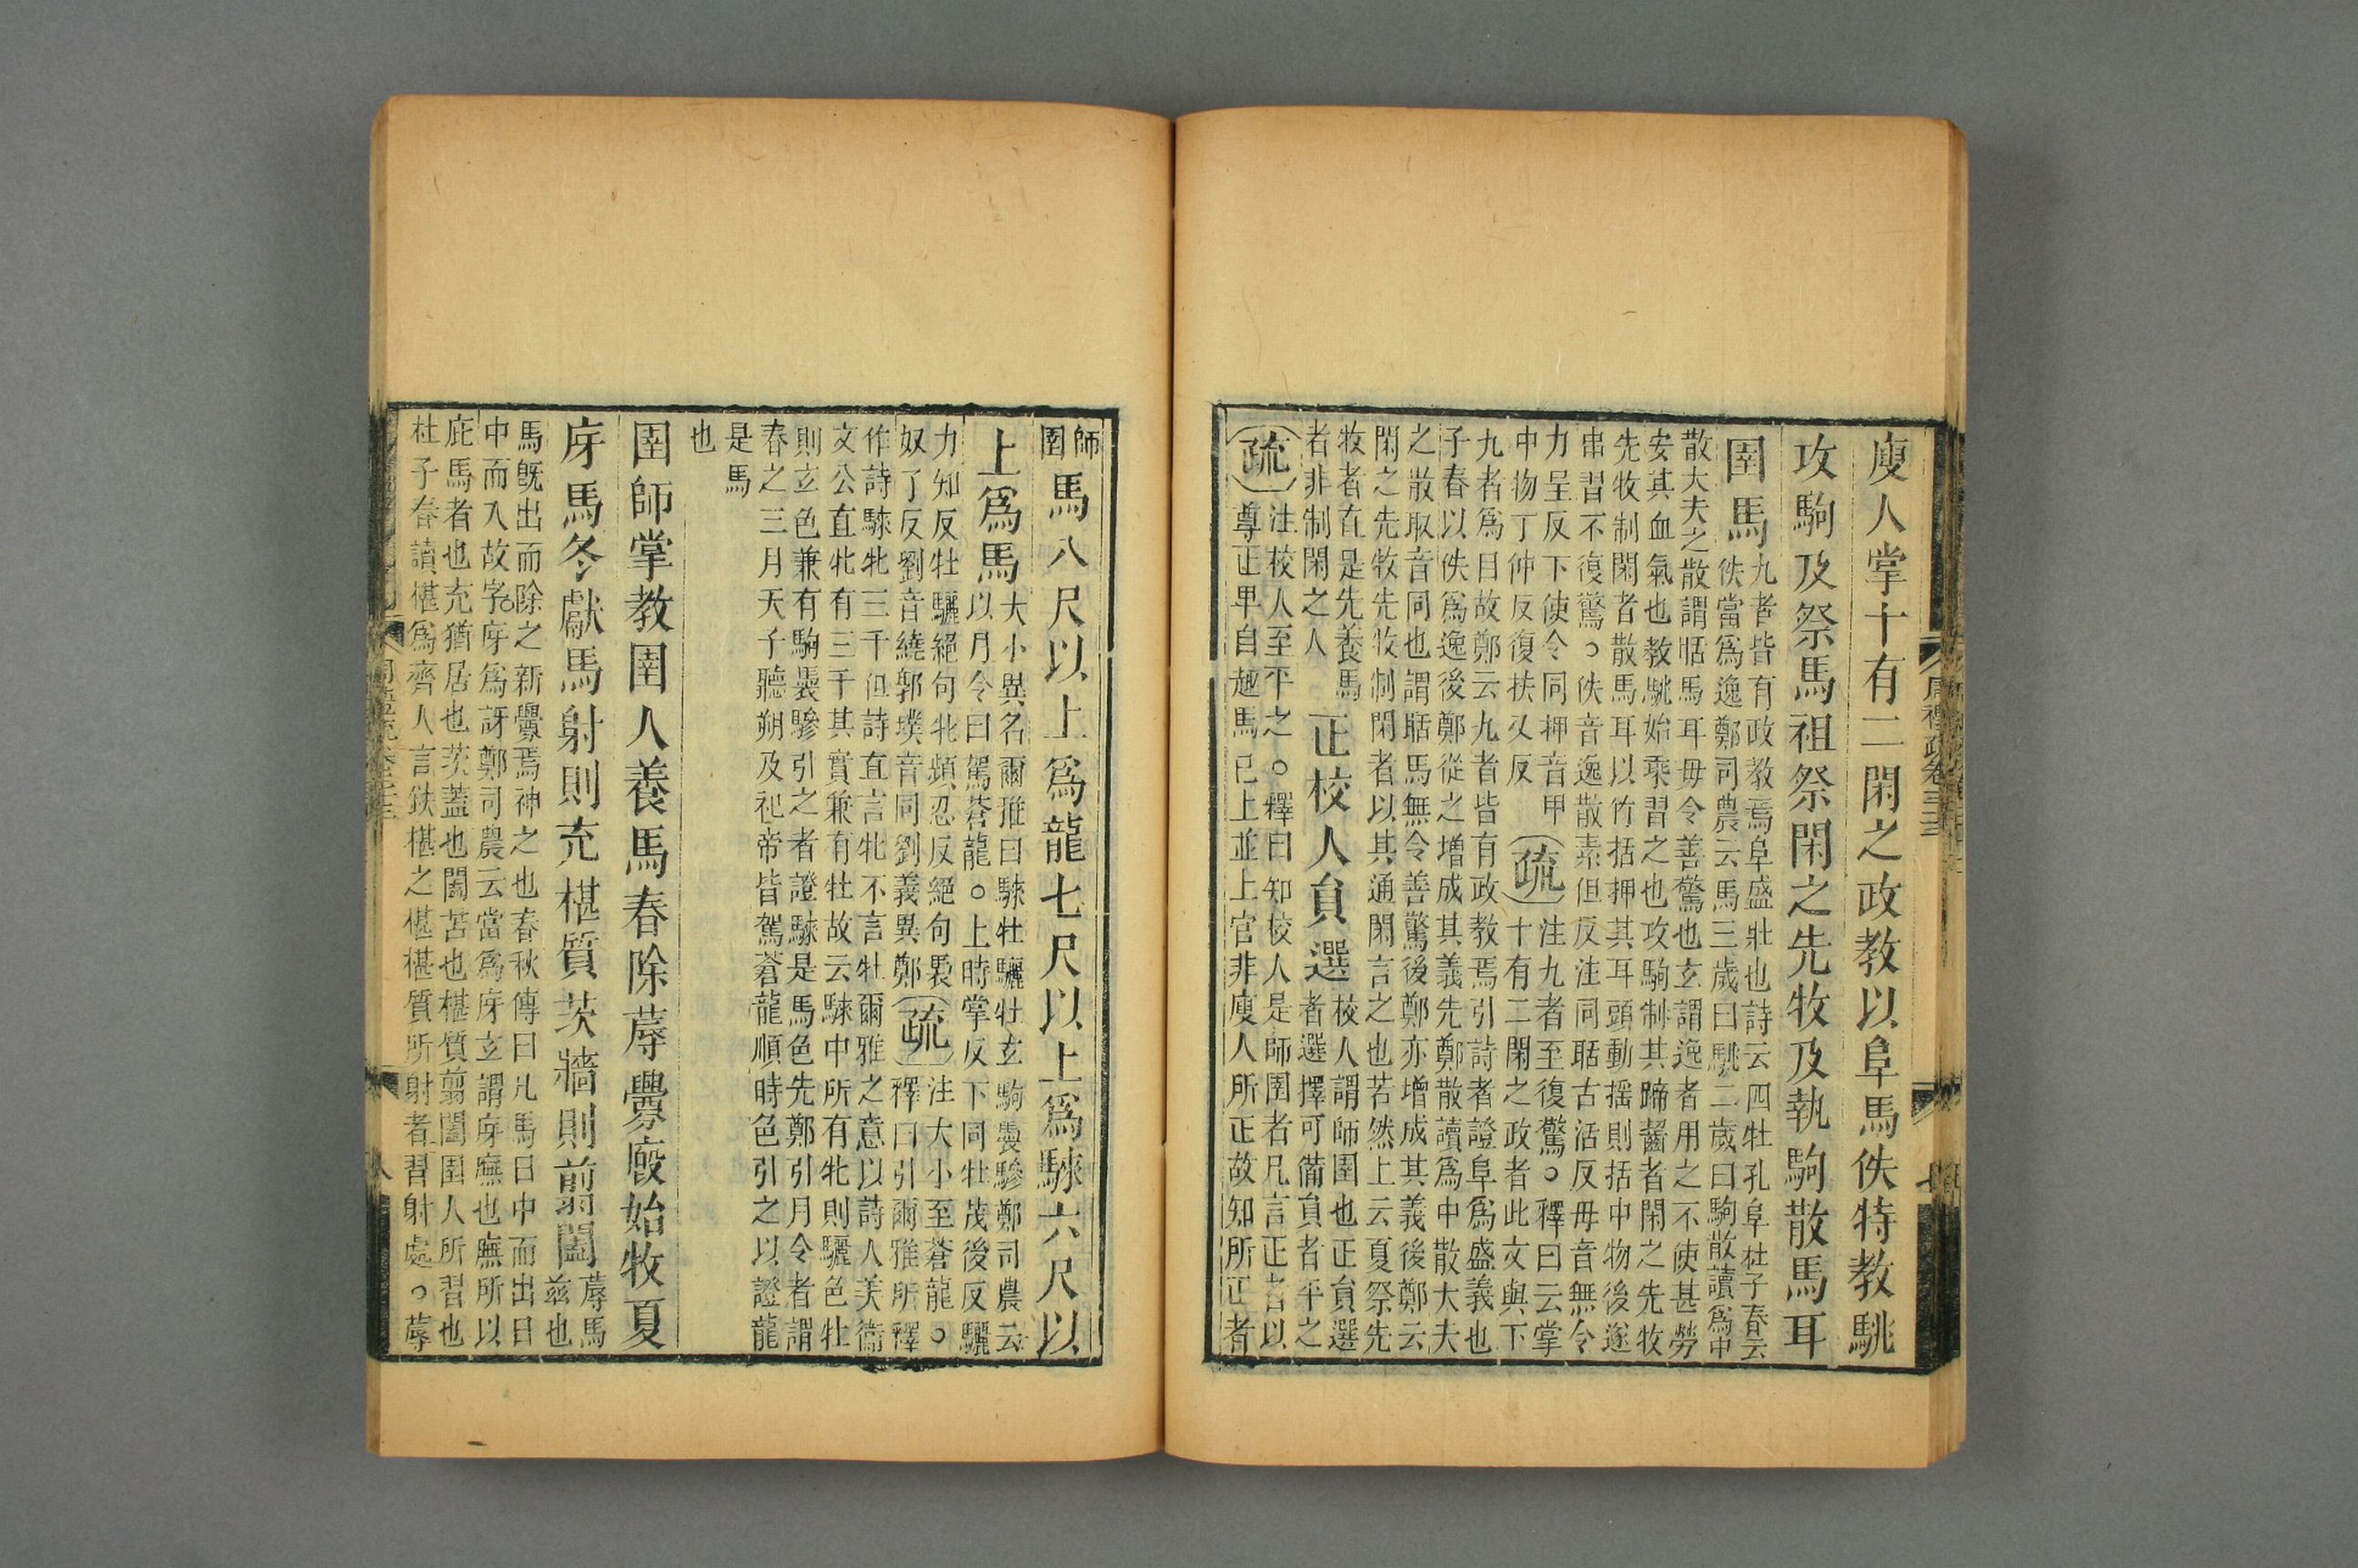 廋人掌十有二閑之政教以阜馬佚特教駣
攻駒及祭馬祖祭閑之先牧及執駒散馬耳
圉馬
九者皆有政教焉阜盛壯也詩云四牡孔阜杜子春云
佚當爲逸鄭司農云馬三歲曰駣二歲曰駒散讀爲中
散大夫之散謂聒馬耳毋令善驚也玄謂逸者用之不使甚勞
安其血氣也教駣始乘習之也攻駒制其蹄齧者閑之先牧
先牧制閑者散馬耳以竹括押其耳頭動搖則括中物後遂
串習不復驚○佚音逸散素但反注同聒古活反毋音無令
力呈反下使令同押音甲
中物丁仲反復扶又反
疏
注九者至復驚○釋曰云掌
十有二閑之政者此文與下
九者爲目故鄭云九者皆有政教焉引詩者證阜爲盛義也
子春以佚爲逸後鄭從之增成其義先鄭散讀爲中散大夫
之散取音同也謂聒馬無令善驚後鄭亦增成其義後鄭云
閑之先牧先牧制閑者以其通閑言之也若然上云夏祭先
牧者直是先養馬
者非制閑之人
正校人員選
校人謂師圉也正員選
者選擇可備員者平之
疏
注校人至平之○釋曰知校人是師圉者凡言正者以
尊正卑自趣馬已上並上官非廋人所正故知所正者
周禮疏卷三十三
七
師
圉
馬八尺以上爲龍七尺以上爲騋六尺以
上爲馬
大小異名爾雅曰騋牡驪牡玄駒褭驂鄭司農云
以月令曰駕蒼龍○上時掌反下同牡茂後反驪
力知反牡驪絕句牝頻忍反絕句褭
奴了反劉音繞郭璞音同劉義異鄭
疏
注大小至蒼龍○
釋曰引爾雅所釋
作詩騋牝三千但詩直言牝不言牡爾雅之意以詩人美衞
文公直牝有三千其實兼有牡故云騋中所有牝則驪色牡
則玄色兼有駒褭驂引之者證騋是馬色先鄭引月令者謂
春之三月天子聽朔及祀帝皆駕蒼龍順時色引之以證龍
是馬
也
圉師掌教圉人養馬春除蓐釁廄始牧夏
庌馬冬獻馬射則充椹質茨牆則翦闔
蓐馬
兹也
馬旣出而除之新釁焉神之也春秋傳曰凡馬日中而出日
中而入故字庌爲訝鄭司農云當爲庌玄謂庌廡也廡所以
庇馬者也充猶居也茨蓋也闔苫也椹質翦闔圉人所習也
杜子春讀椹爲齊人言鈇椹之椹椹質所射者習射處○蓐
八